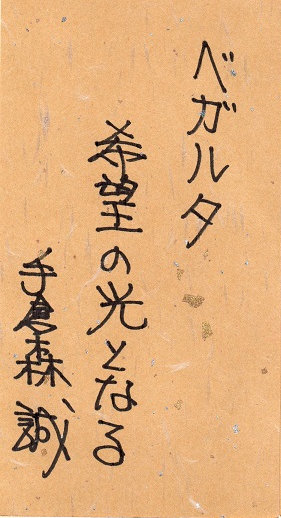 ベガルタ
希望の光となる
手倉森 誠